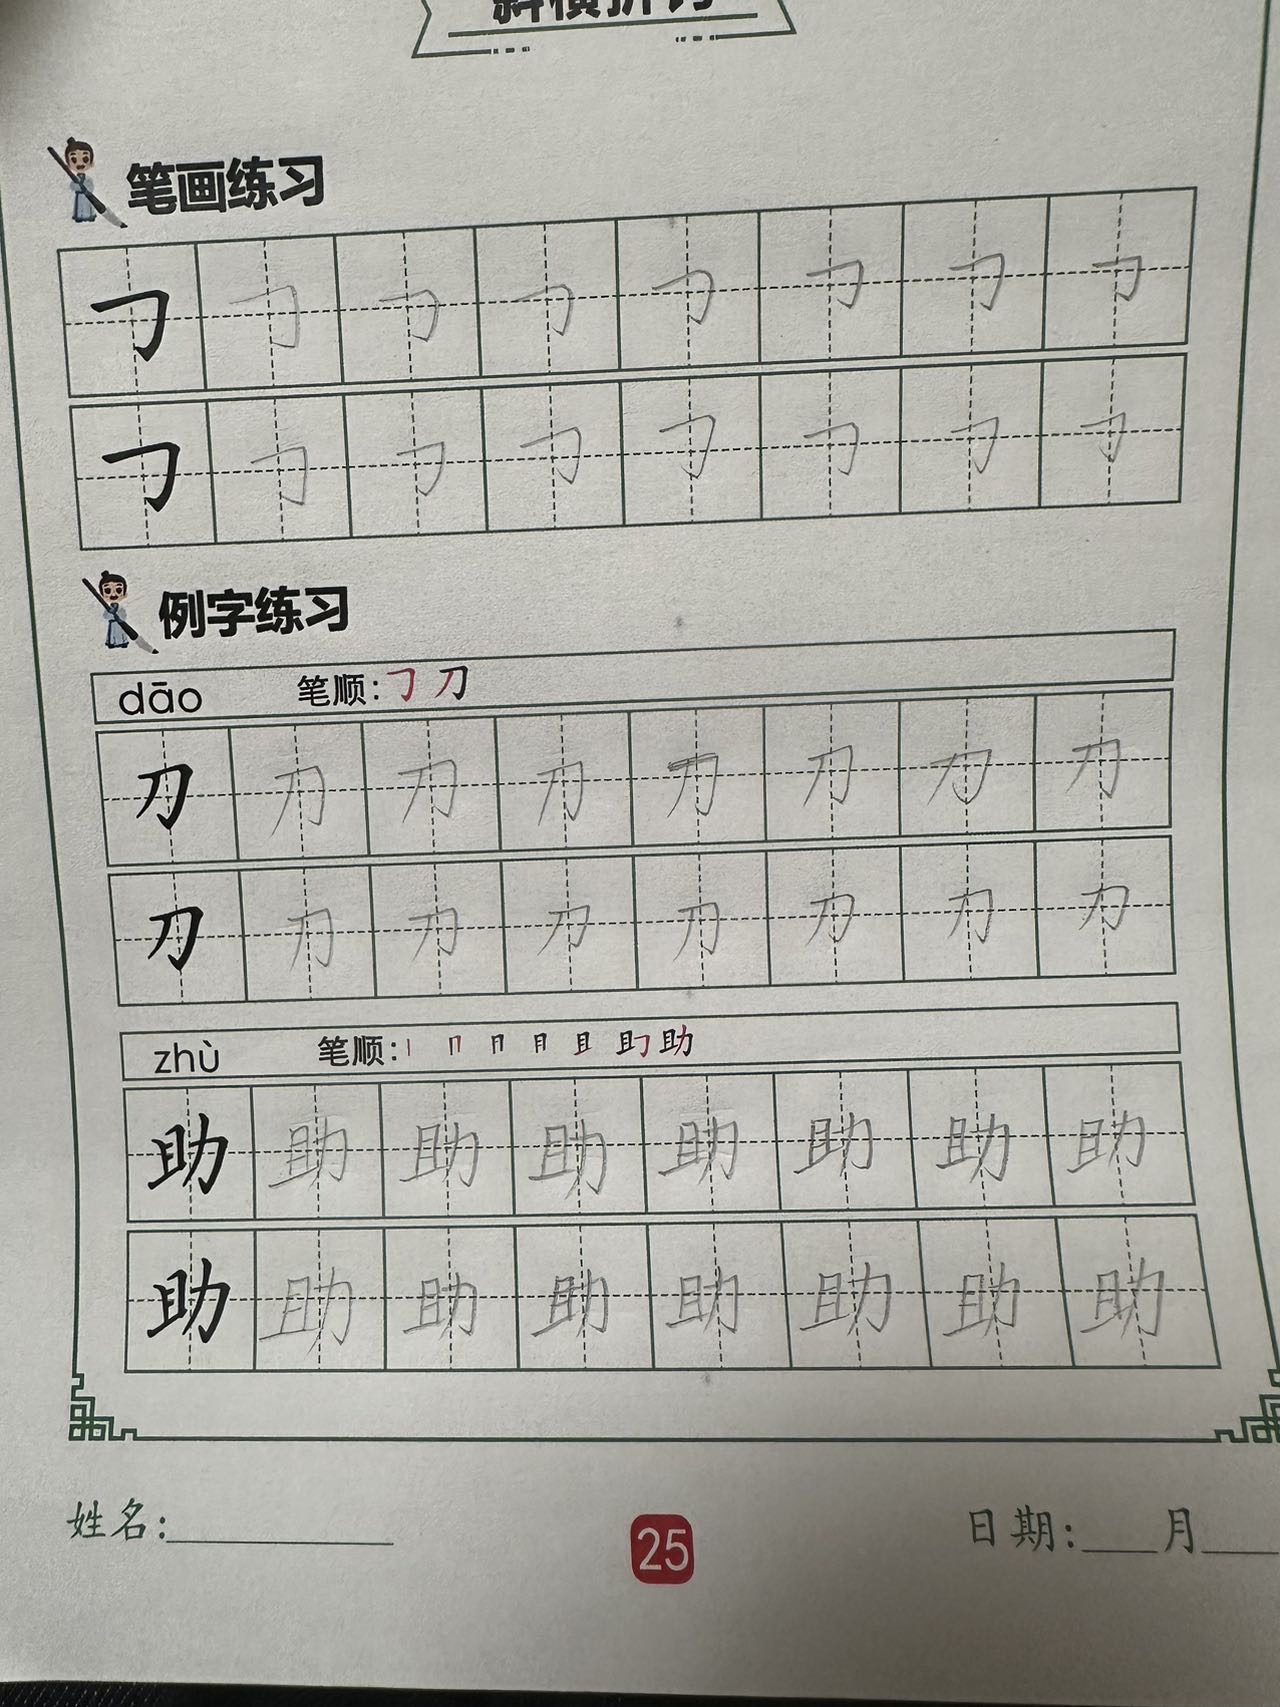 斜横折钩
笔画练习
㇆ ㇆ ㇆ ㇆ ㇆ ㇆ ㇆ ㇆
㇆ ㇆ ㇆ ㇆ ㇆ ㇆ ㇆ ㇆
例字练习
dāo 笔顺:㇆ 刀
刀 刀 刀 刀 刀 刀 刀 刀
刀 刀 刀 刀 刀 刀 刀 刀
zhù 笔顺:丨 冂 ⺆ 月 且 助 助
助 助 助 助 助 助 助 助
助 助 助 助 助 助 助 助
姓名: 25 日期: 月